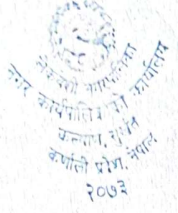 लेकबेशी नगरपालिका
नगर कार्यपालिकाको कार्यालय
कल्याण, सुर्खेत
कर्णाली प्रदेश, नेपाल
२०७३